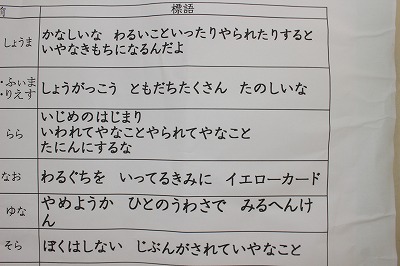 前 標語
しょうま かなしいな わるいこといったりやられたりすると
いやなきもちになるんだよ
・ふぃま
・りえす しょうがっこう ともだちたくさん たのしいな
いじめのはじまり
らら いわれてやなことやられてやなこと
たにんにするな
なお わるぐちを いってるきみに イエローカード
ゆな やめようか ひとのうわさで みるへんけ
ん
そら ぼくはしない じぶんがされていやなこと